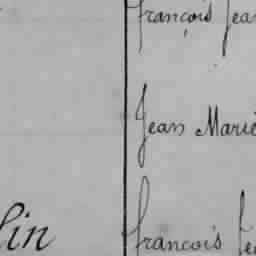 françois Jean
Jean Marie
lin françois